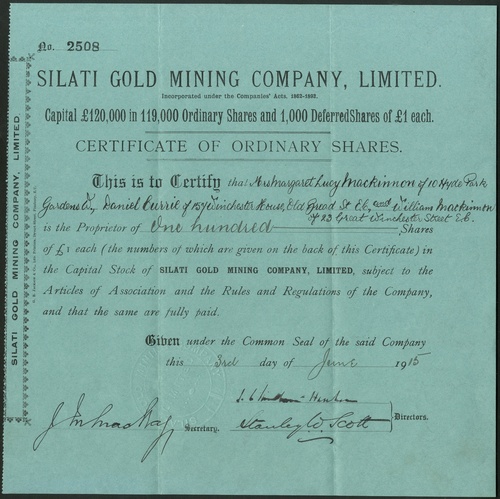 No. 2508
SILATI GOLD MINING COMPANY, LIMITED.
Incorporated under the Companies' Acts, 1862-1898.
Capital £120,000 in 119,000 Ordinary Shares and 1,000 Deferred Shares of £1 each.
CERTIFICATE OF ORDINARY SHARES.
This is to Certify that Mrs Margaret Lucy Mackinnon of 10 Hyde Park
Gardens W, Daniel Currie of 154 Winchester House, Old Broad St E.C., and William Mackinnon
of 23 Great Winchester Street E.C.
is the Proprietor of One hundred Shares
of £1 each (the numbers of which are given on the back of this Certificate) in
the Capital Stock of SILATI GOLD MINING COMPANY, LIMITED, subject to the
Articles of Association and the Rules and Regulations of the Company,
and that the same are fully paid.
Given under the Common Seal of the said Company
this 3rd day of June 1915
Secretary.
Stanley W. Scott
Directors.
SILATI GOLD MINING COMPANY, LIMITED.